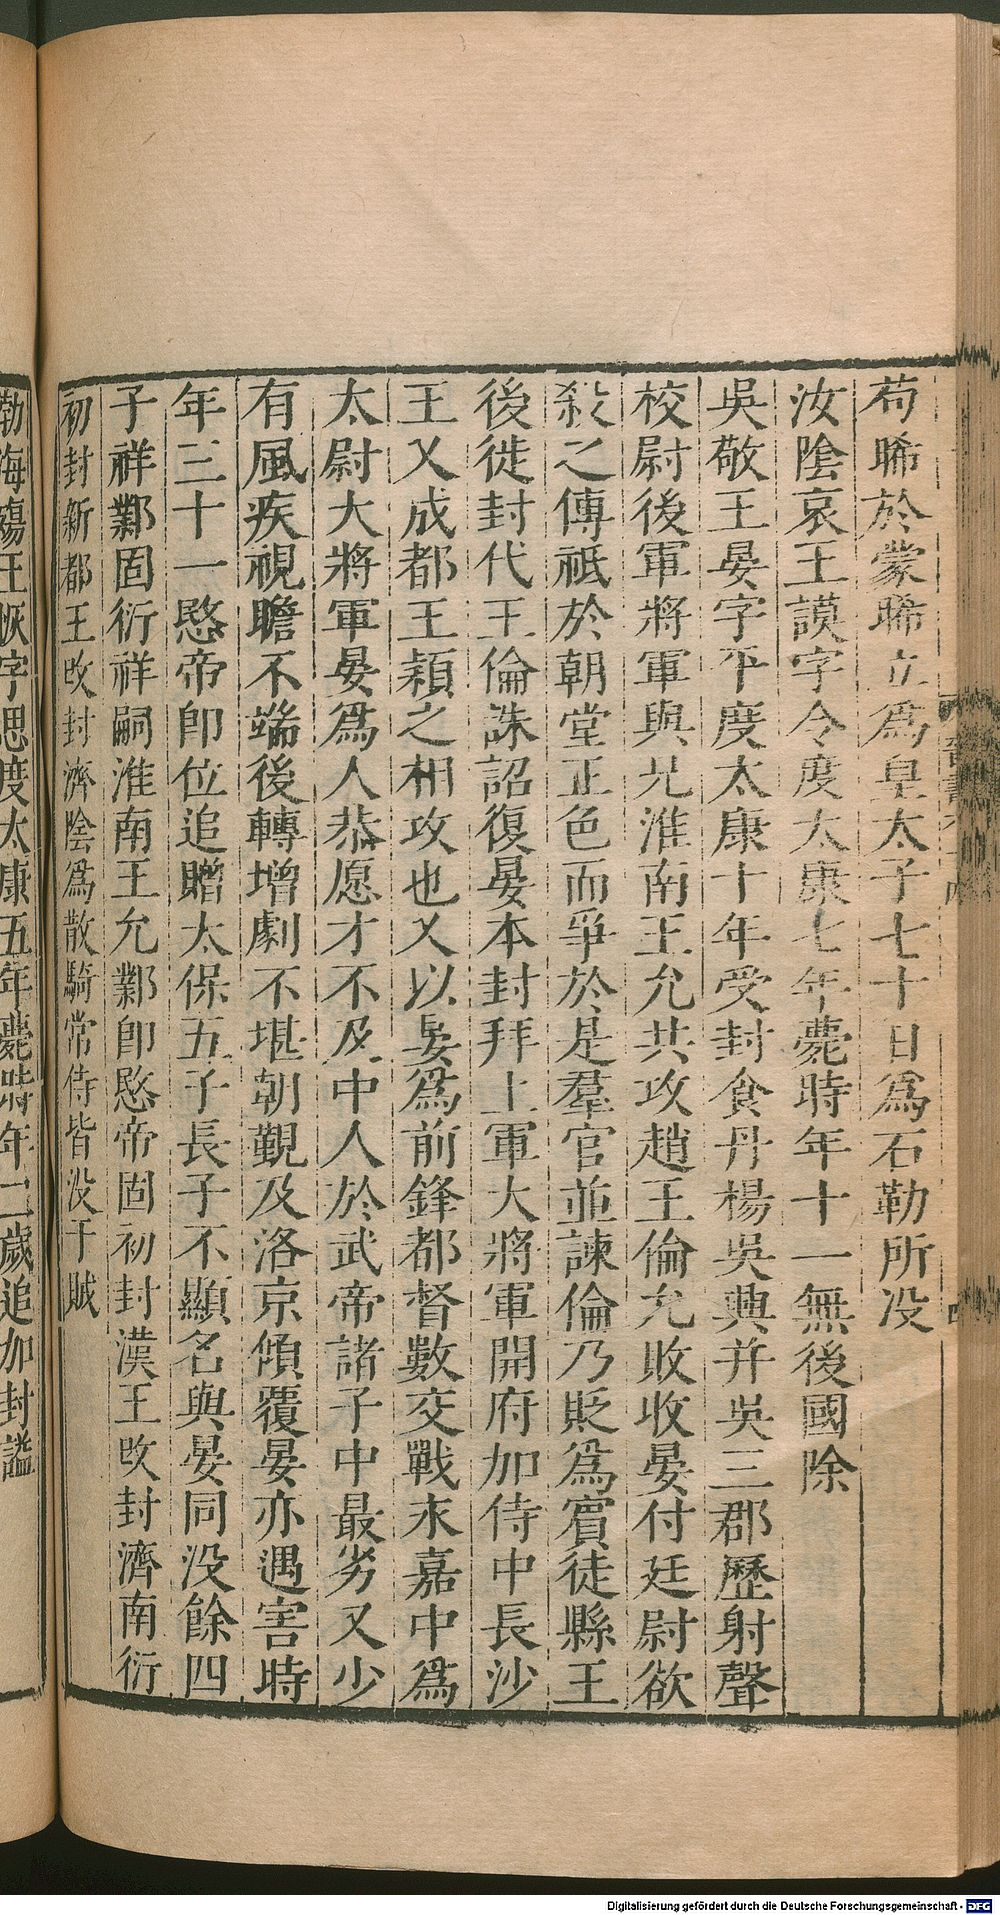 苟晞於蒙晞立爲皇太子七十日爲石勒所没
汝隂哀王謨字令度太康七年薨時年十一無後國除
吳敬王晏字平度太康十年受封食丹楊吳興并吳三郡歷射聲
校尉後軍將軍與兄淮南王允共攻趙王倫允敗收晏付廷尉欲
殺之傅祗於朝堂正色而爭於是羣官並諫倫乃貶爲賓徒縣王
後徙封代王倫誅詔復晏本封拜上軍大將軍開府加侍中長沙
王乂成都王穎之相攻也乂以晏爲前鋒都督數交戰末嘉中爲
太尉大將軍晏爲人恭愿才不及中人於武帝諸子中最劣又少
有風疾視瞻不端後轉增劇不堪朝覲及洛京傾覆晏亦遇害時
年三十一愍帝卽位追贈太保五子長子不顯名與晏同没餘四
子祥鄴固衍祥嗣淮南王允鄴卽愍帝固初封漢王改封濟南衍
初封新都王改封濟隂爲散騎常侍皆没于賊
勃海殤王恢字思度太康五年薨時年二歲追加封諡
Digitalisierung gefördert durch die Deutsche Forschungsgemeinschaft - DFG